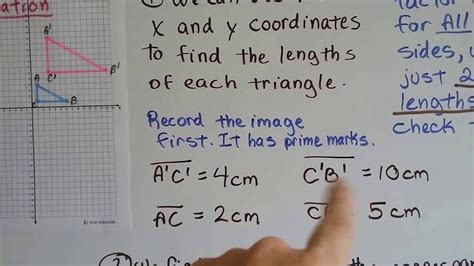 ation
① We can
x and y coordinates
to find the lengths
of each triangle.
Record the image
first. It has prime marks.
A'C' = 4cm
C'B' = 10cm
AC = 2cm
C 5cm
for All
sides, u
just 2
lengths
check
A'
C'
B'
A
C
B